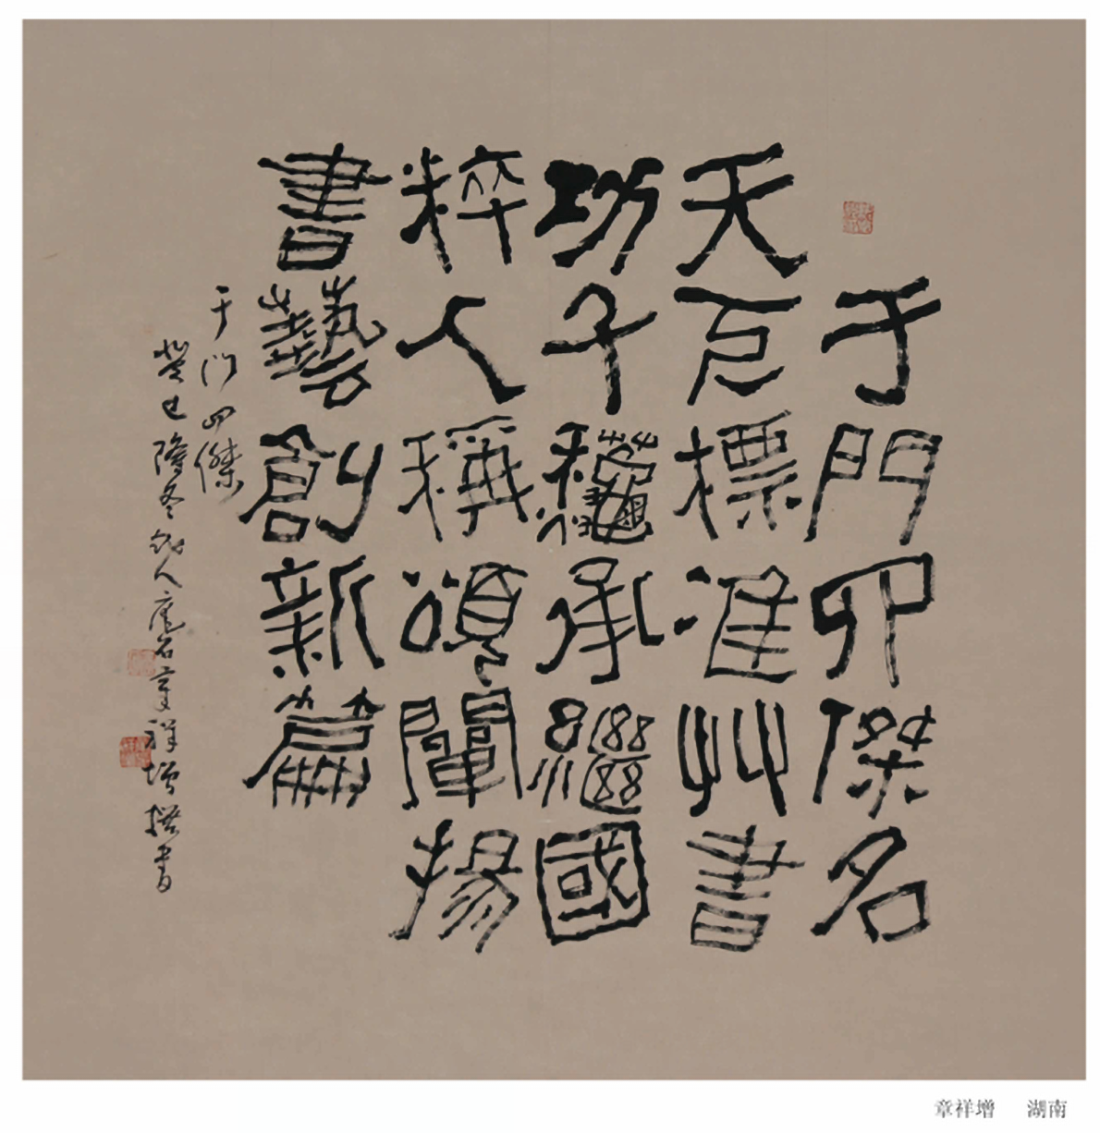 于門四傑名
天下標準艸書
功千龝承繼國
粹人稱頌闡揚
書藝創新篇
于門四傑
癸巳隆冬人庵石章祥增撰書
章祥增 湖南